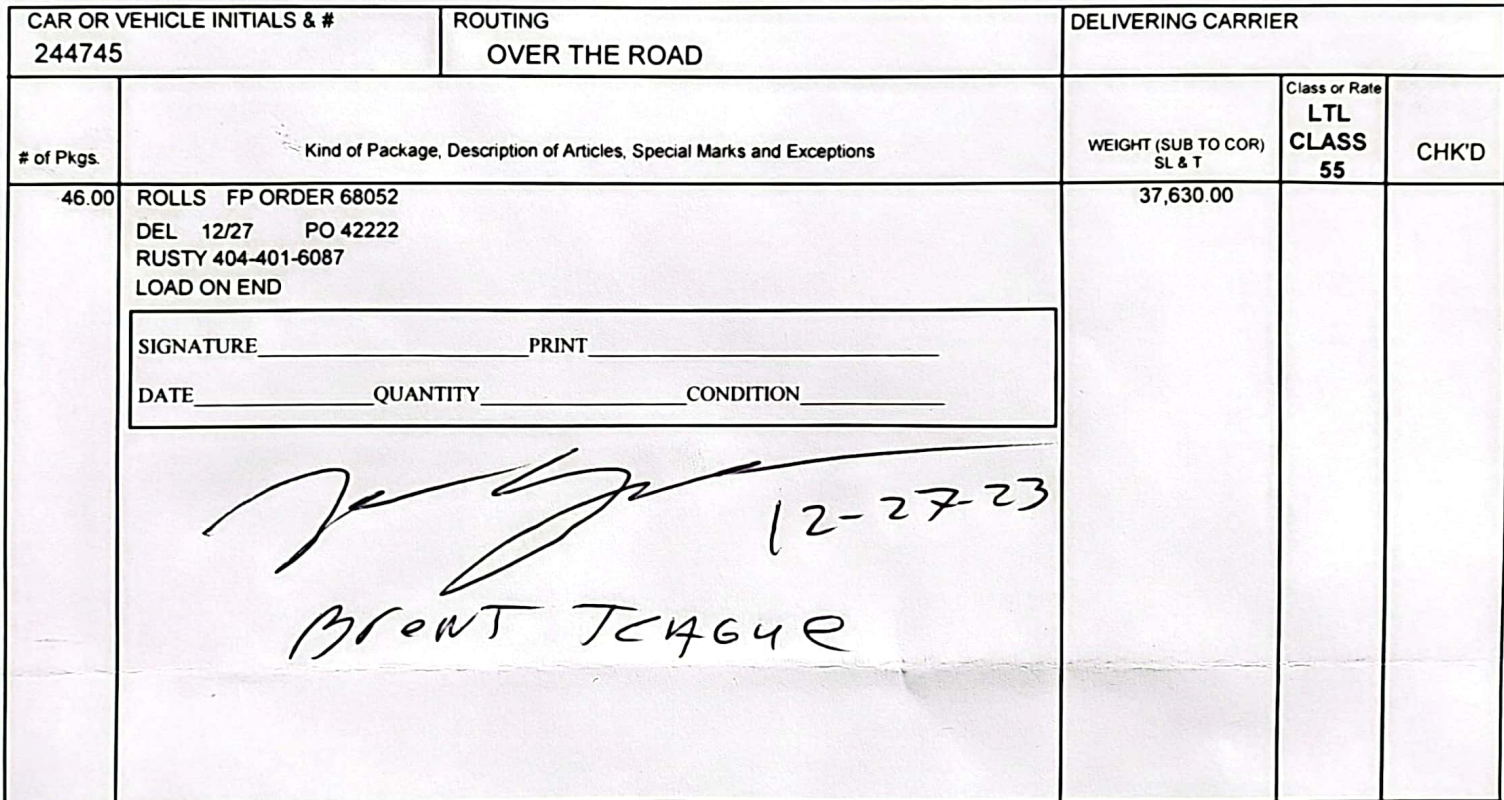 CAR OR VEHICLE INITIALS & #
244745
ROUTING
OVER THE ROAD
DELIVERING CARRIER
# of Pkgs.
Kind of Package, Description of Articles, Special Marks and Exceptions
WEIGHT (SUB TO COR)
SL & T
Class or Rate
LTL
CLASS
55
CHK'D
46.00 ROLLS FP ORDER 68052 37,630.00
DEL 12/27 PO 42222
RUSTY 404-401-6087
LOAD ON END
SIGNATURE PRINT
DATE QUANTITY CONDITION
12-27-23
Brent Teague